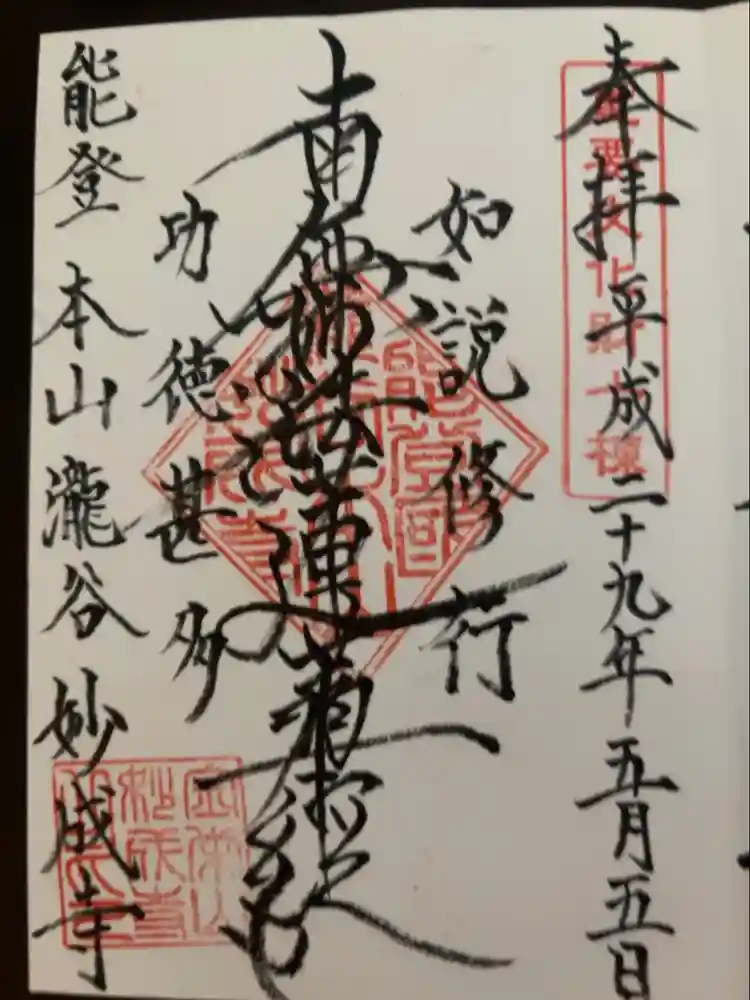 奉拝 平成二十九年五月五日
重要文化財十棟
如説修行
南無妙法蓮華経
功徳甚多
能登 本山 瀧谷 妙成寺